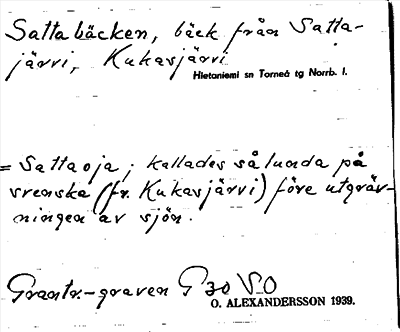 Sattabäcken, bäck från Satta-
järvi, Kukasjärvi
Hietaniemi sn Torneå tg Norrb. l.
= Sattaoja; kallades sålunda på
svenska (fr. Kukasjärvi) före utgräv-
ningen av sjön.
-graven
O. ALEXANDERSSON 1939.